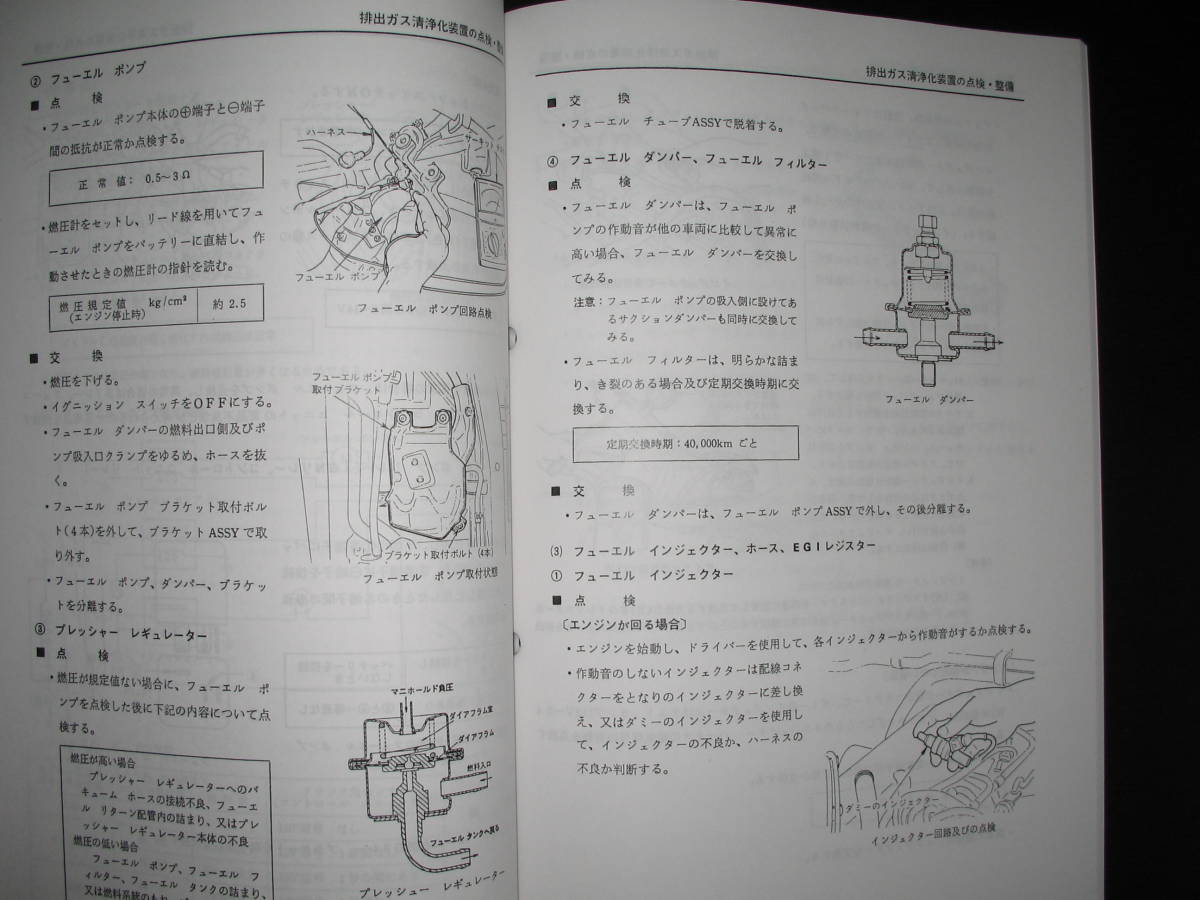 排出ガス清浄化装置の点検・整
② フューエル ポンプ
■ 点 検
・フューエル ポンプ本体の⊕端子と⊖端子
間の抵抗が正常か点検する。
正 常 値: 0.5〜3Ω
・燃圧計をセットし、リード線を用いてフュ
ーエル ポンプをバッテリーに直結し、作
動させたときの燃圧計の指針を読む。
燃圧規定値 kg/cm²
(エンジン停止時)
約 2.5
ハーネス
サーキット
フューエル ポンプ
フューエル ポンプ回路点検
■ 交 換
・燃圧を下げる。
・イグニッション スイッチをOFFにする。
・フューエル ダンパーの燃料出口側及びポ
ンプ吸入口クランプをゆるめ、ホースを抜
く。
・フューエル ポンプ ブラケット取付ボル
ト(4本)を外して、ブラケットASSYで取
り外す。
・フューエル ポンプ、ダンパー、ブラケッ
トを分離する。
フューエル ポンプ
取付ブラケット
ブラケット取付ボルト(4本)
フューエル ポンプ取付状態
③ プレッシャー レギュレーター
■ 点 検
・燃圧が規定値ない場合に、フューエル ポ
ンプを点検した後に下記の内容について点
検する。
燃圧が高い場合
プレッシャー レギュレーターへのバ
キューム ホースの接続不良、フューエ
ル リターン配管内の詰まり、又はプレ
ッシャー レギュレーター本体の不良
燃圧の低い場合
フューエル ポンプ、フューエル フ
ィルター、フューエル タンクの詰まり、
又は燃料系統のもれ、
マニホールド負圧
ダイアフラム室
ダイアフラム
燃料入口
フューエル タンクへ戻る
プレッシュー レギュレーター
排出ガス清浄化装置の点検・整備
■ 交 換
・フューエル チューブASSYで脱着する。
④ フューエル ダンパー、フューエル フィルター
■ 点 検
・フューエル ダンパーは、フューエル ポ
ンプの作動音が他の車両に比較して異常に
高い場合、フューエル ダンパーを交換し
てみる。
注意:フューエル ポンプの吸入側に設けてあ
るサクションダンパーも同時に交換して
みる。
・フューエル フィルターは、明らかな詰ま
り、き裂のある場合及び定期交換時期に交
換する。
定期交換時期:40,000km ごと
フューエル ダンパー
■ 交 換
・フューエル ダンパーは、フューエル ポンプASSYで外し、その後分離する。
(3) フューエル インジェクター、ホース、EGIレジスター
① フューエル インジェクター
■ 点 検
〔エンジンが回る場合〕
・エンジンを始動し、ドライバーを使用して、各インジェクターから作動音がするか点検する。
・作動音のしないインジェクターは配線コネ
クターをとなりのインジェクターに差し換
え、又はダミーのインジェクターを使用し
て、インジェクターの不良か、ハーネスの
不良か判断する。
ダミーのインジェクター
インジェクター回路及びの点検